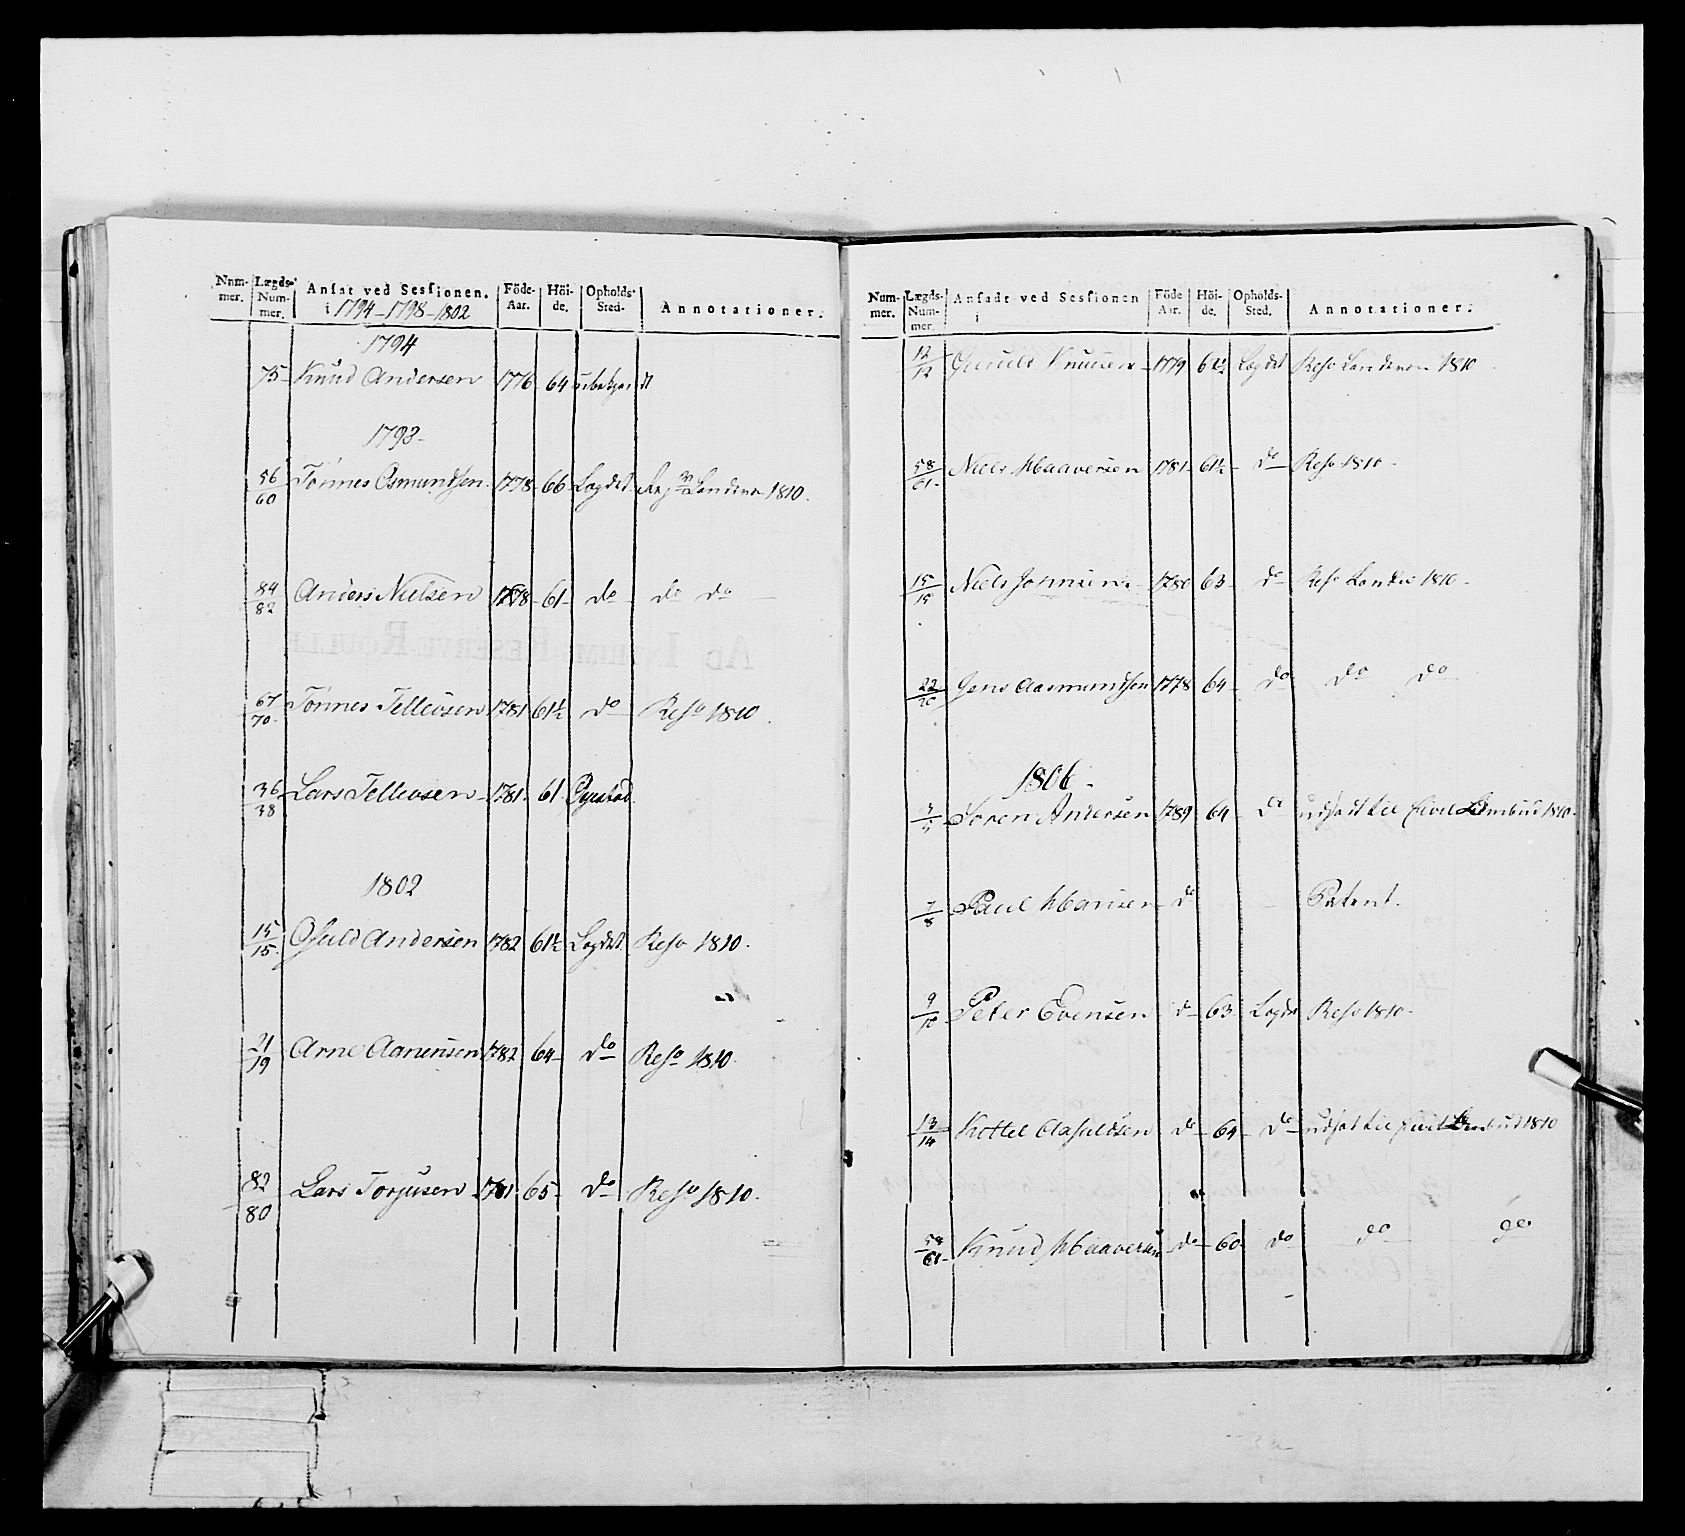 Num- mer. Lægds- Num- mer. Ansat ved Sessionen. i 1794-1798-1802 Föde- Aar. Höi- de. Opholds- Sted. Annotationer.
1794
75 Knud Andersen 1776 64 ubekjendt
1798
56/60 Tönnes Osmundsen 1778 66 Lægdet Landevær 1810.
84/82 Anders Nielsen 1778 61 do do do
67/70 Tönnes Tellevsen 1781 61½ do Reso 1810.
36/38 Lars Tellevsen 1781 61
1802
15/15 Osuld Andersen 1782 61½ Lægdet Reso 1810.
21/19 Arne Aanensen 1782 64 do Reso 1810.
82/80 Lars Torjusen 1781 65 do Reso 1810.
Num- mer. Lægds- Num- mer. Ansadt ved Sessionen i Föde Aar. Höi- de. Opholds- Sted. Annotationer.
12/12 Knudsen 1779 62½ Lægdet Reso Landevær 1810
58/61 Niels Haaversen 1781 61½ do Reso 1810
15/15 Niels Johnsen 1780 63 do Reso Landev 1810
22/20 Jens Aasmundsen 1778 64 do do do
1806
3/5 Sören Andersen 1789 64 do udsadt til Civil Ombud 1810
7/8 Paul Hansen do Patent.
9/10 Peter Evensen do 63 Lægdet Reso 1810
13/14 Kittel Aasuldsen do 64 do udsat til Civil Ombud 1810
58/61 Knud Haaversen do 60 do do do